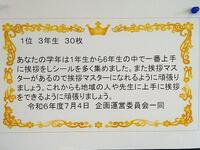 1位 3年生 30枚
あなたの学年は1年生から6年生の中で一番上手
に挨拶をしシールを多く集めました。また挨拶マス
ターがあるので挨拶マスターになれるように頑張り
ましょう。これからも地域の人や先生に上手に挨拶
をできるように頑張りましょう。
令和06年度7月4日 企画運営委員会一同